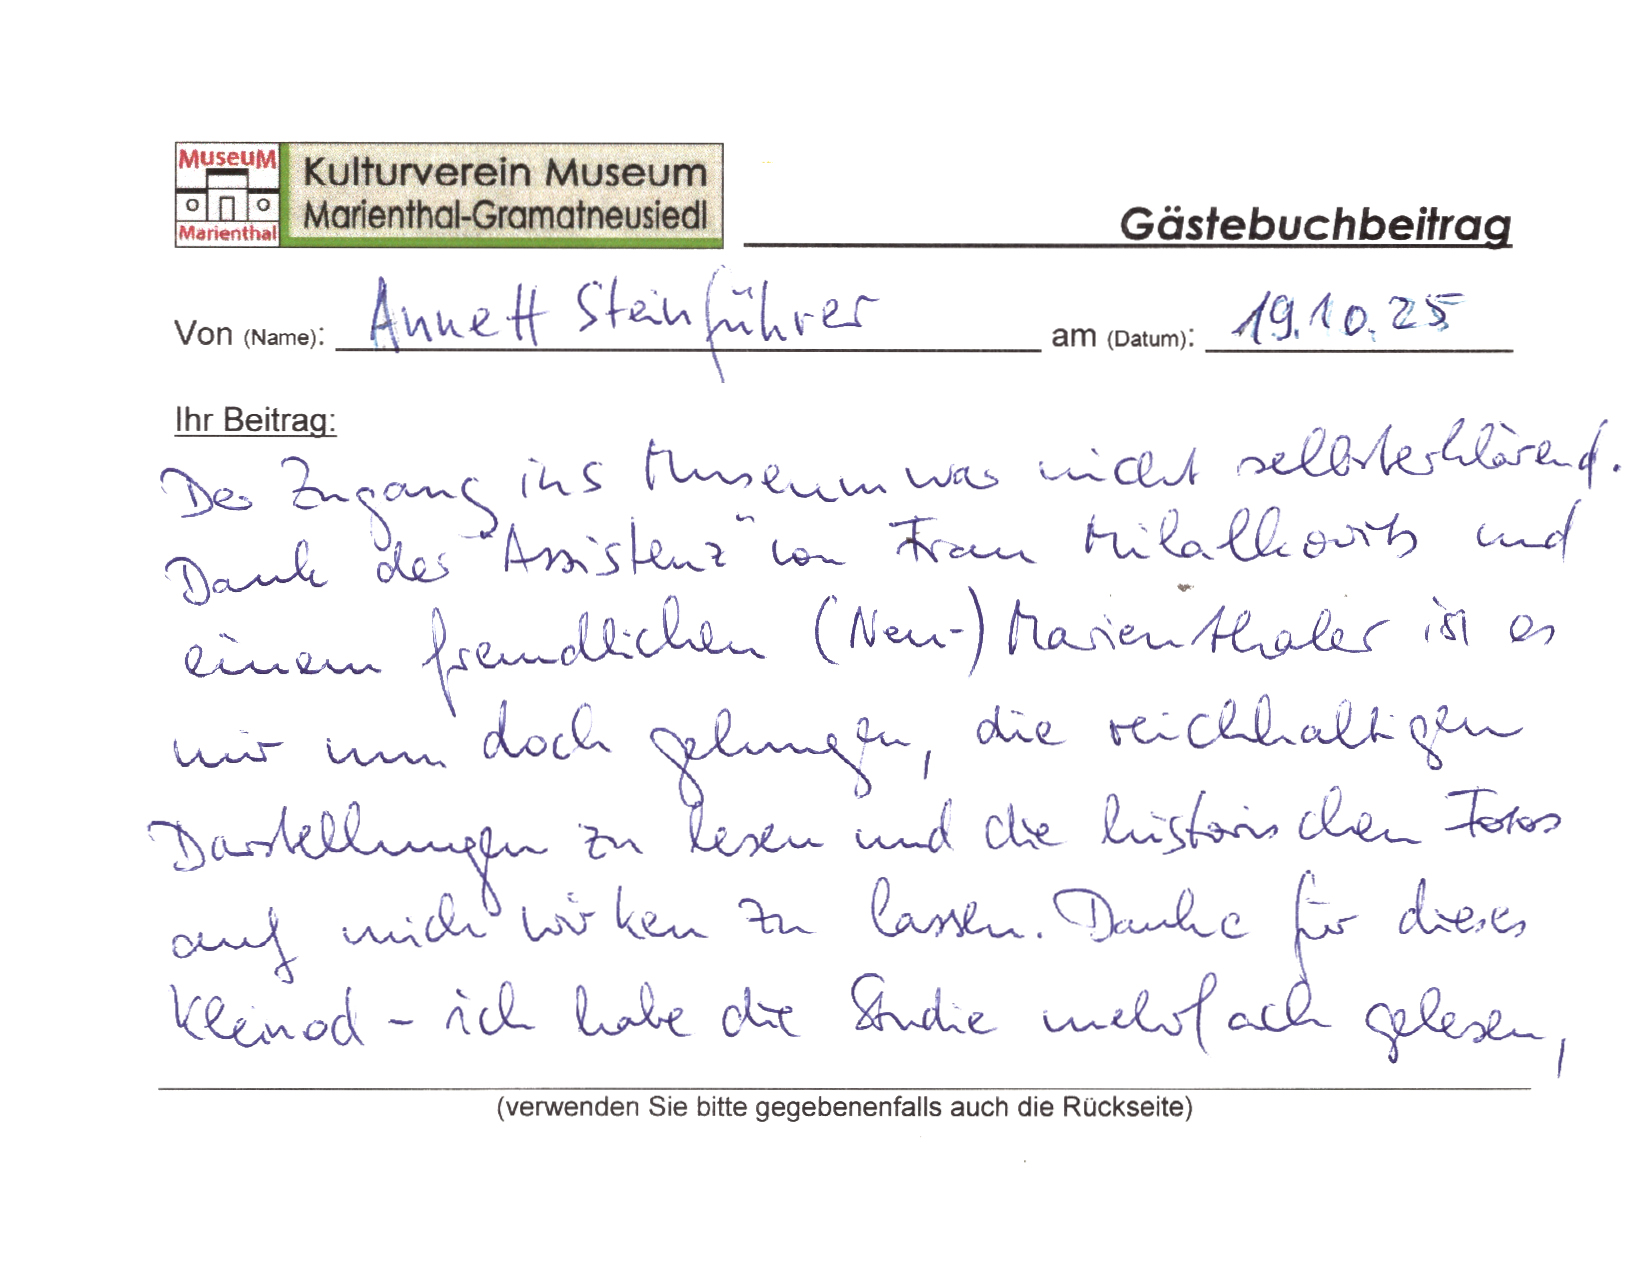 MuseuM
Marienthal
Kulturverein Museum
Marienthal-Gramatneusiedl
Gästebuchbeitrag
Von (Name): Annett Steinführer am (Datum): 19.10.25
Ihr Beitrag:
Der Zugang ins Museum war nicht selbsterklärend.
Dank der "Assistenz" von Frau Milalkovits und
einem freundlichen (Neu-) Marienthaler ist es
mir nun doch gelungen, die reichhaltigen
Darstellungen zu lesen und die historischen Fotos
auf mich wirken zu lassen. Danke für dieses
Kleinod – ich habe die Studie mehrfach gelesen,
(verwenden Sie bitte gegebenenfalls auch die Rückseite)